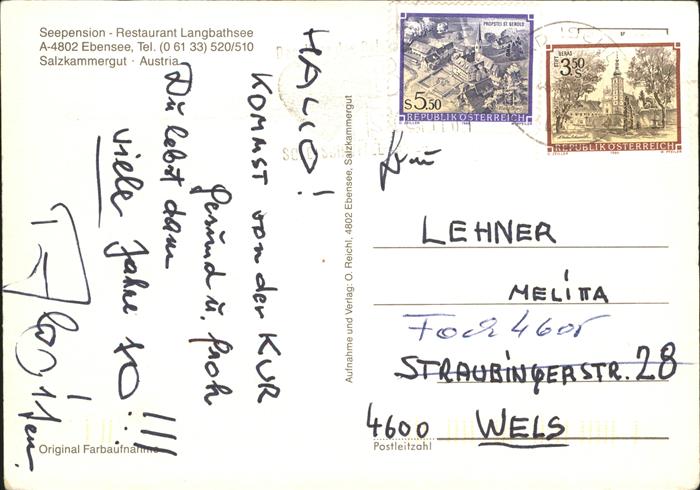 Seepension - Restaurant Langbathsee
A-4802 Ebensee, Tel. (0 61 33) 520/510
Salzkammergut · Austria
HALLO!
KOMMST von der KUR
Gesund u. froh
Du lebst dann
viele Jahre so!!!
Original Farbaufnahme
Aufnahme und Verlag: O. Reichl, 4802 Ebensee, Salzkammergut
PROPSTEI ST. GEROLD
S 5.50
REPUBLIK ÖSTERREICH
STIFT GERAS
3.50
S
REPUBLIK ÖSTERREICH
Frau
LEHNER
MELITTA
STRAUBINGERSTR. 28
4600 WELS
Postleitzahl